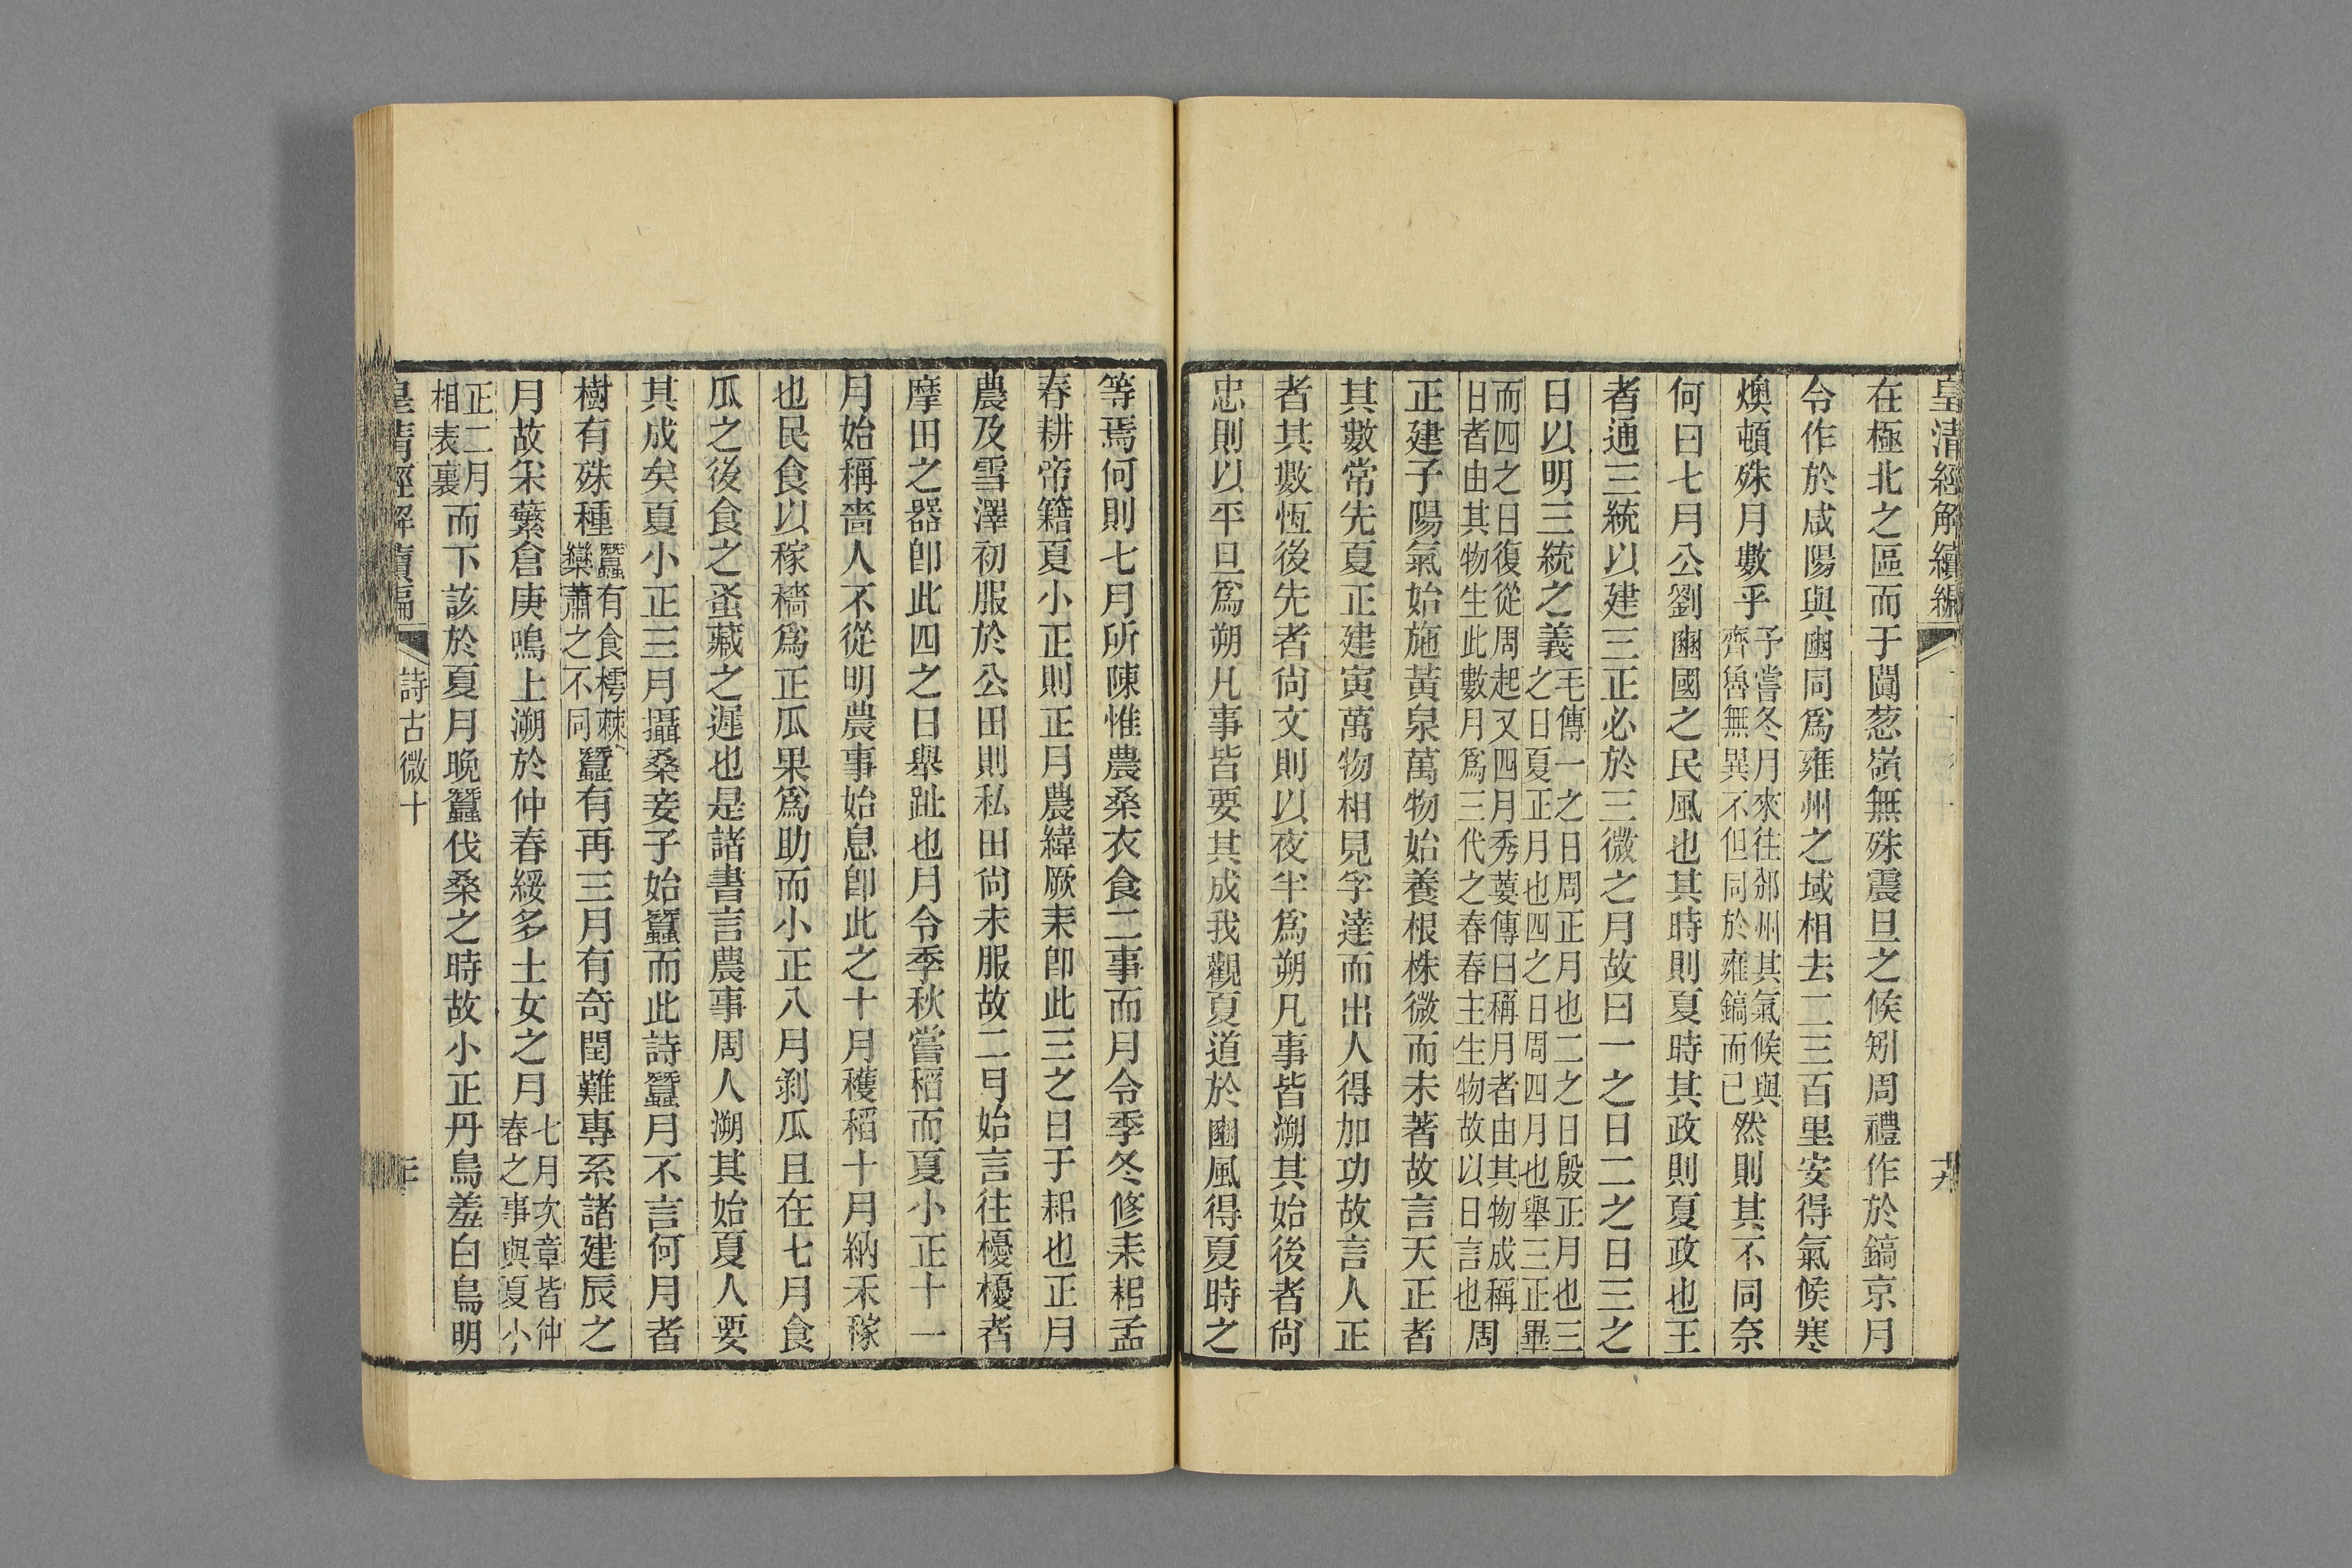 皇清經解續編
十九
在極北之區而于闐葱嶺無殊震旦之候矧周禮作於鎬京月
令作於咸陽與豳同爲雍州之域相去二三百里安得氣候寒
燠頓殊月數乎予嘗冬月來往邠州其氣候與齊魯無異不但同於雍鎬而已然則其不同奈
何曰七月公劉豳國之民風也其時則夏時其政則夏政也王
者通三統以建三正必於三微之月故曰一之日二之日三之
日以明三統之義毛傳一之日周正月也二之日殷正月也三之日夏正月也四之日周四月也舉三正畢
而四之日復從周起又四月秀葽傳曰稱月者由其物成稱日者由其物生此數月爲三代之春春主生物故以日言也周
正建子陽氣始施黃泉萬物始養根株微而未著故言天正者
其數常先夏正建寅萬物相見孚達而出人得加功故言人正
者其數恆後先者尙文則以夜半爲朔凡事皆溯其始後者尙
忠則以平旦爲朔凡事皆要其成我觀夏道於豳風得夏時之
等焉何則七月所陳惟農桑衣食二事而月令季冬修耒耜孟
春耕帝籍夏小正則正月農緯厥耒卽此三之日于耜也正月
農及雪澤初服於公田則私田尙未服故二月始言往耰耰者
摩田之器卽此四之日舉趾也月令季秋嘗稻而夏小正十一
月始稱嗇人不從明農事始息卽此之十月穫稻十月納禾稼
也民食以稼穡爲正瓜果爲助而小正八月剝瓜且在七月食
瓜之後食之蚤藏之遲也是諸書言農事周人溯其始夏人要
其成矣夏小正三月攝桑妾子始蠶而此詩蠶月不言何月者
樹有殊種蠶有食樗棘欒蕭之不同蠶有再三月有奇閏難專系諸建辰之
月故采蘩倉庚鳴上溯於仲春綏多士女之月七月次章皆仲春之事與夏小
正二月相表裏而下該於夏月晚蠶伐桑之時故小正丹鳥羞白鳥明
皇清經解續編
詩古微十